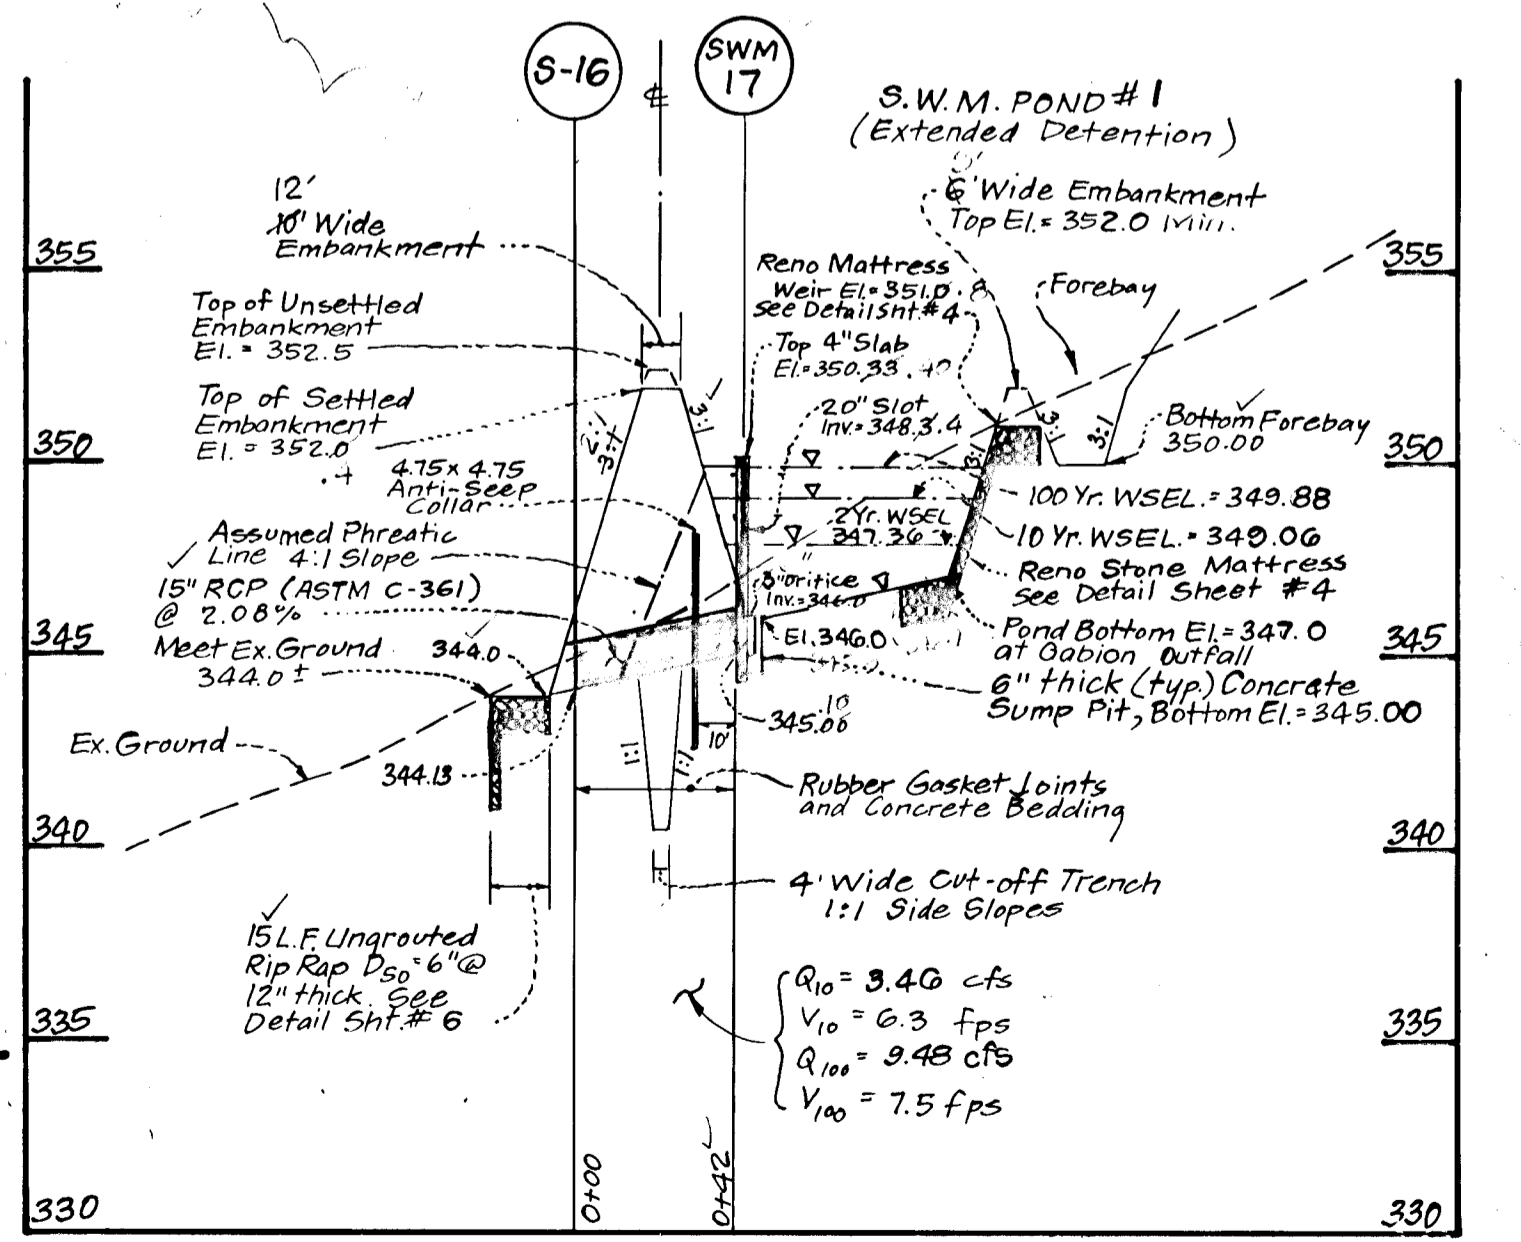 S-16
SWM
17
S.W.M. POND #1
(Extended Detention)
12'
10' Wide
Embankment
6' Wide Embankment
Top El.= 352.0 Min.
355
355
Reno Mattress
Weir El.= 351.0 .8
see Detail Sht.#4
Forebay
Top of Unsettled
Embankment
El. = 352.5
Top 4" Slab
El.= 350.33 .40
Top of Settled
Embankment
El. = 352.0
.4
2:1
3:1
3:1
20" Slot
Inv.= 348.3.4
3:1
3:1
3:1
Bottom Forebay
350.00
350
350
4.75 x 4.75
Anti-Seep
Collar
100 Yr. WSEL.= 349.88
10 Yr. WSEL.= 349.06
2 Yr. WSEL
347.36
Assumed Phreatic
Line 4:1 Slope
Reno Stone Mattress
see Detail Sheet #4
15" RCP (ASTM C-361)
@ 2.08%
3" orifice
Inv.= 346.0
Meet Ex. Ground
344.0 ±
344.0
El. 346.0
Pond Bottom El.= 347.0
at Gabion Outfall
345
345
6" thick (typ.) Concrete
Sump Pit, Bottom El.= 345.00
.10
345.00
Ex. Ground
344.13
1:1
1:1
10'
Rubber Gasket Joints
and Concrete Bedding
340
340
4' Wide Cut-off Trench
1:1 Side Slopes
15 L.F. Ungrouted
Rip Rap D50 = 6" @
12" thick. See
Detail Sht.# 6
Q10 = 3.46 cfs
V10 = 6.3 fps
Q100 = 9.48 cfs
V100 = 7.5 fps
335
335
0+00
0+42
330
330